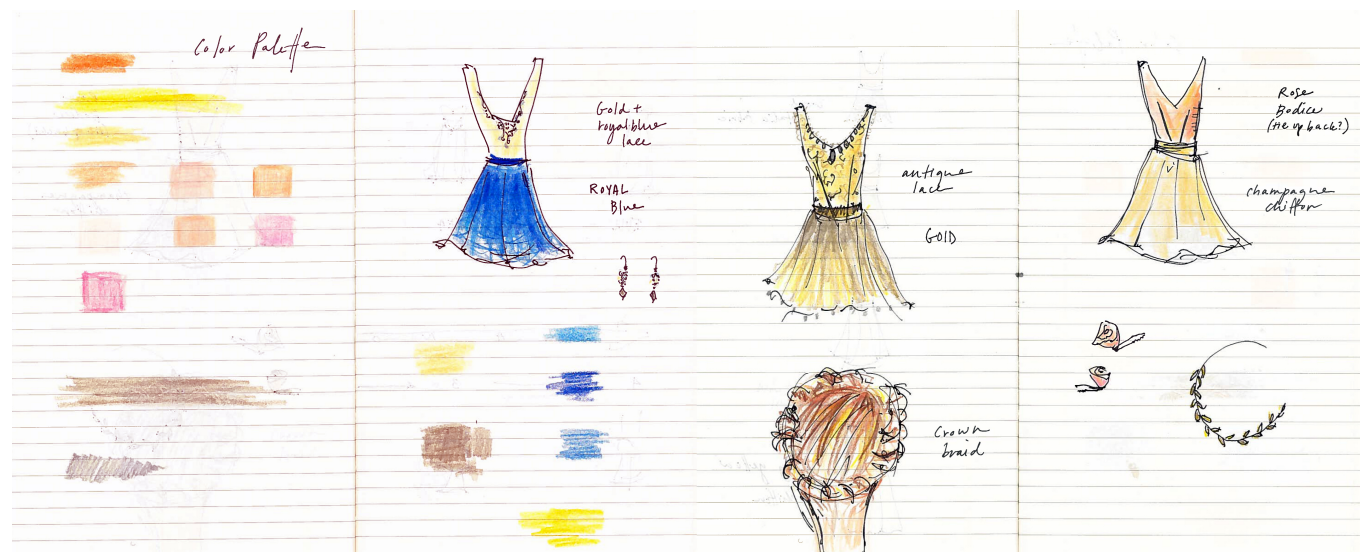 Color Palette
Gold +
royal blue
lace
ROYAL
Blue
antique
lace
GOLD
Crown
braid
Rose
Bodice
(tie up back?)
champagne
chiffon